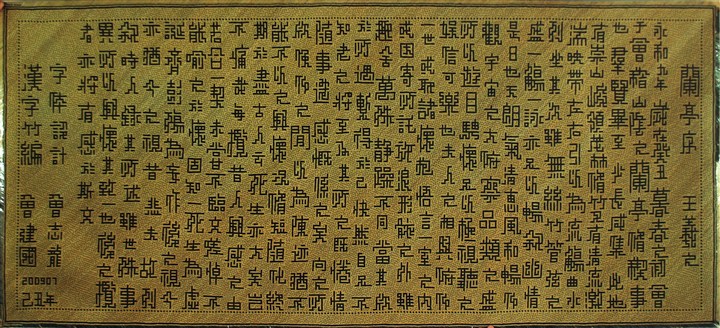 蘭亭序 王羲之
永和九年歲在癸丑暮春之初會
于會稽山陰之蘭亭脩稧事
也群賢畢至少長咸集此地
有崇山峻領茂林脩竹又有清流激
湍映帶左右引以為流觴曲水
列坐其次雖無絲竹管弦之
盛一觴一詠亦足以暢敘幽情
是日也天朗氣清惠風和暢仰
觀宇宙之大俯察品類之盛
所以遊目騁懷足以極視聽之
娛信可樂也夫人之相與俯仰
一世或取諸懷抱悟言一室之內
或因寄所託放浪形骸之外雖
趣舍萬殊靜躁不同當其欣
於所遇暫得於己快然自足不
知老之將至及其所之既惓情
隨事遷感慨係之矣向之所
欣俛仰之間以為陳迹猶不
能不以之興懷況脩短隨化終
期於盡古人云死生亦大矣豈
不痛哉每攬昔人興感之由
若合一契未嘗不臨文嗟悼不
能喻之於懷固知一死生為虛
誕齊彭殤為妄作後之視今
亦猶今之視昔悲夫故列
敘時人錄其所述雖世殊事
異所以興懷其致一也後之攬
者亦將有感於斯文
字体設計 曾志龍
漢字竹編 曾建國
200907
己丑年